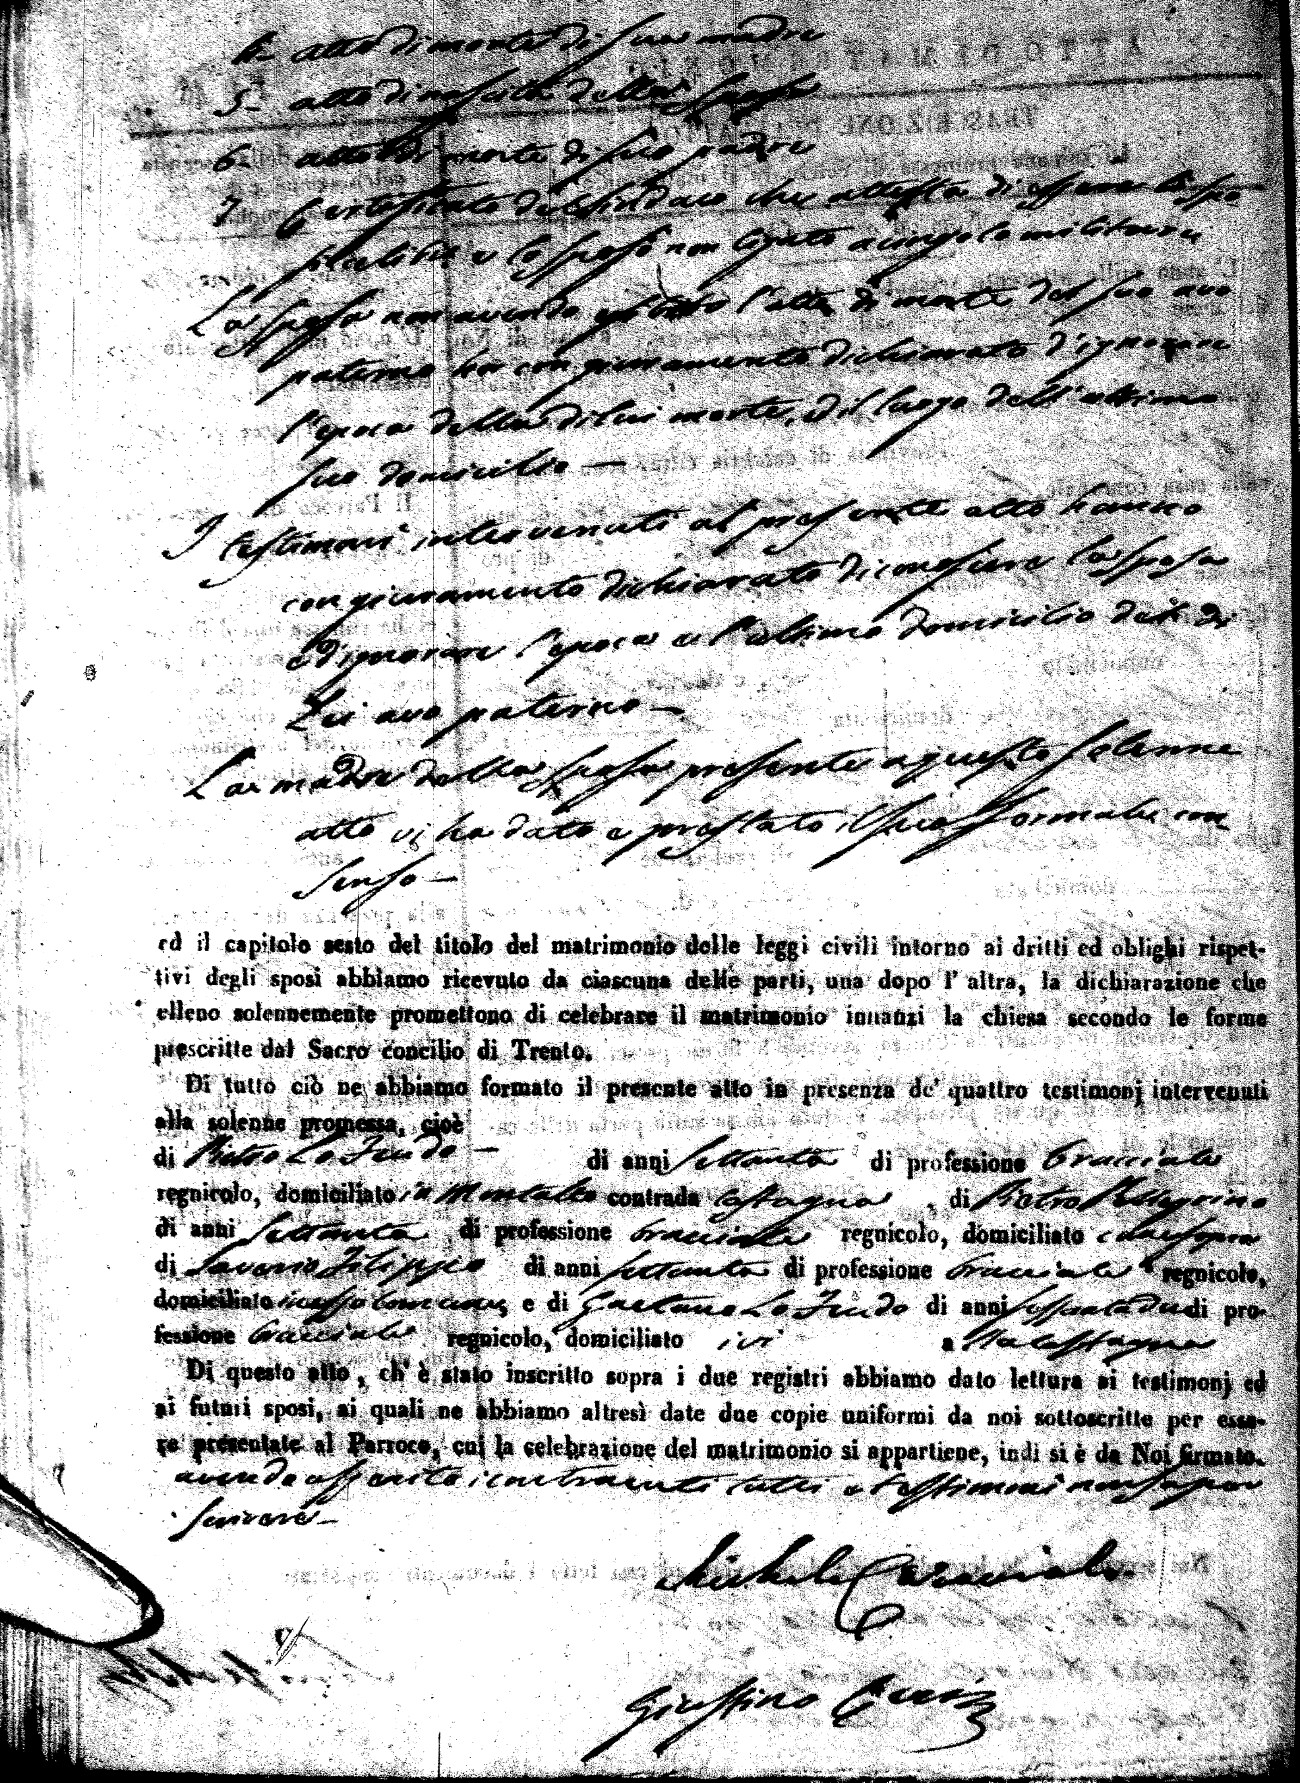 4- atto di morte di sua madre
5- atto di nascita della sposa
6- atto di morte di suo padre
7. Certificato del Sindaco che attesta di essere la spo
sa celibe e lo sposo non legato a cingolo militare
La sposa non avendo l'atto di morte del suo avo
paterno ha con giuramento dichiarato d'ignorare
l'epoca della di lui morte, ed il luogo dell'ultimo
suo domicilio —
I testimoni intervenuti al presente atto hanno
con giuramento dichiarato di conoscere la sposa
e d'ignorare l'epoca e l'ultimo domicilio del di
Lei avo paterno —
La madre della sposa presente a questo solenne
atto vi ha dato e prestato il suo formale con
senso —
ed il capitolo sesto del titolo del matrimonio delle leggi civili intorno ai dritti ed oblighi rispet-
tivi degli sposi abbiamo ricevuto da ciascuna delle parti, una dopo l' altra, la dichiarazione che
elleno solennemente promettono di celebrare il matrimonio innanzi la chiesa secondo le forme
prescritte dal Sacro concilio di Trento.
Di tutto ciò ne abbiamo formato il presente atto in presenza de' quattro testimonj intervenuti
alla solenne promessa, cioè
di Pietro Lo Feudo — di anni settanta di professione bracciale
regnicolo, domiciliato in Montalto contrada castagna , di Pietro Pellegrino
di anni settanta di professione bracciale regnicolo, domiciliato come sopra
di Saverio Filippo di anni settanta di professione bracciale regnicolo,
domiciliato e di Gaetano Lo Feudo di anni sessantadue di pro-
fessione bracciale regnicolo, domiciliato ivi a Lla castagna
Di questo atto, ch' è stato inscritto sopra i due registri abbiamo dato lettura ai testimonj ed
ai futuri sposi, ai quali ne abbiamo altresì date due copie uniformi da noi sottoscritte per esse-
re presentate al Parroco, cui la celebrazione del matrimonio si appartiene, indi si è da Noi firmato.
avendo asserito i contraenti tutti e testimoni non saper
scrivere —
Michele
Giustino